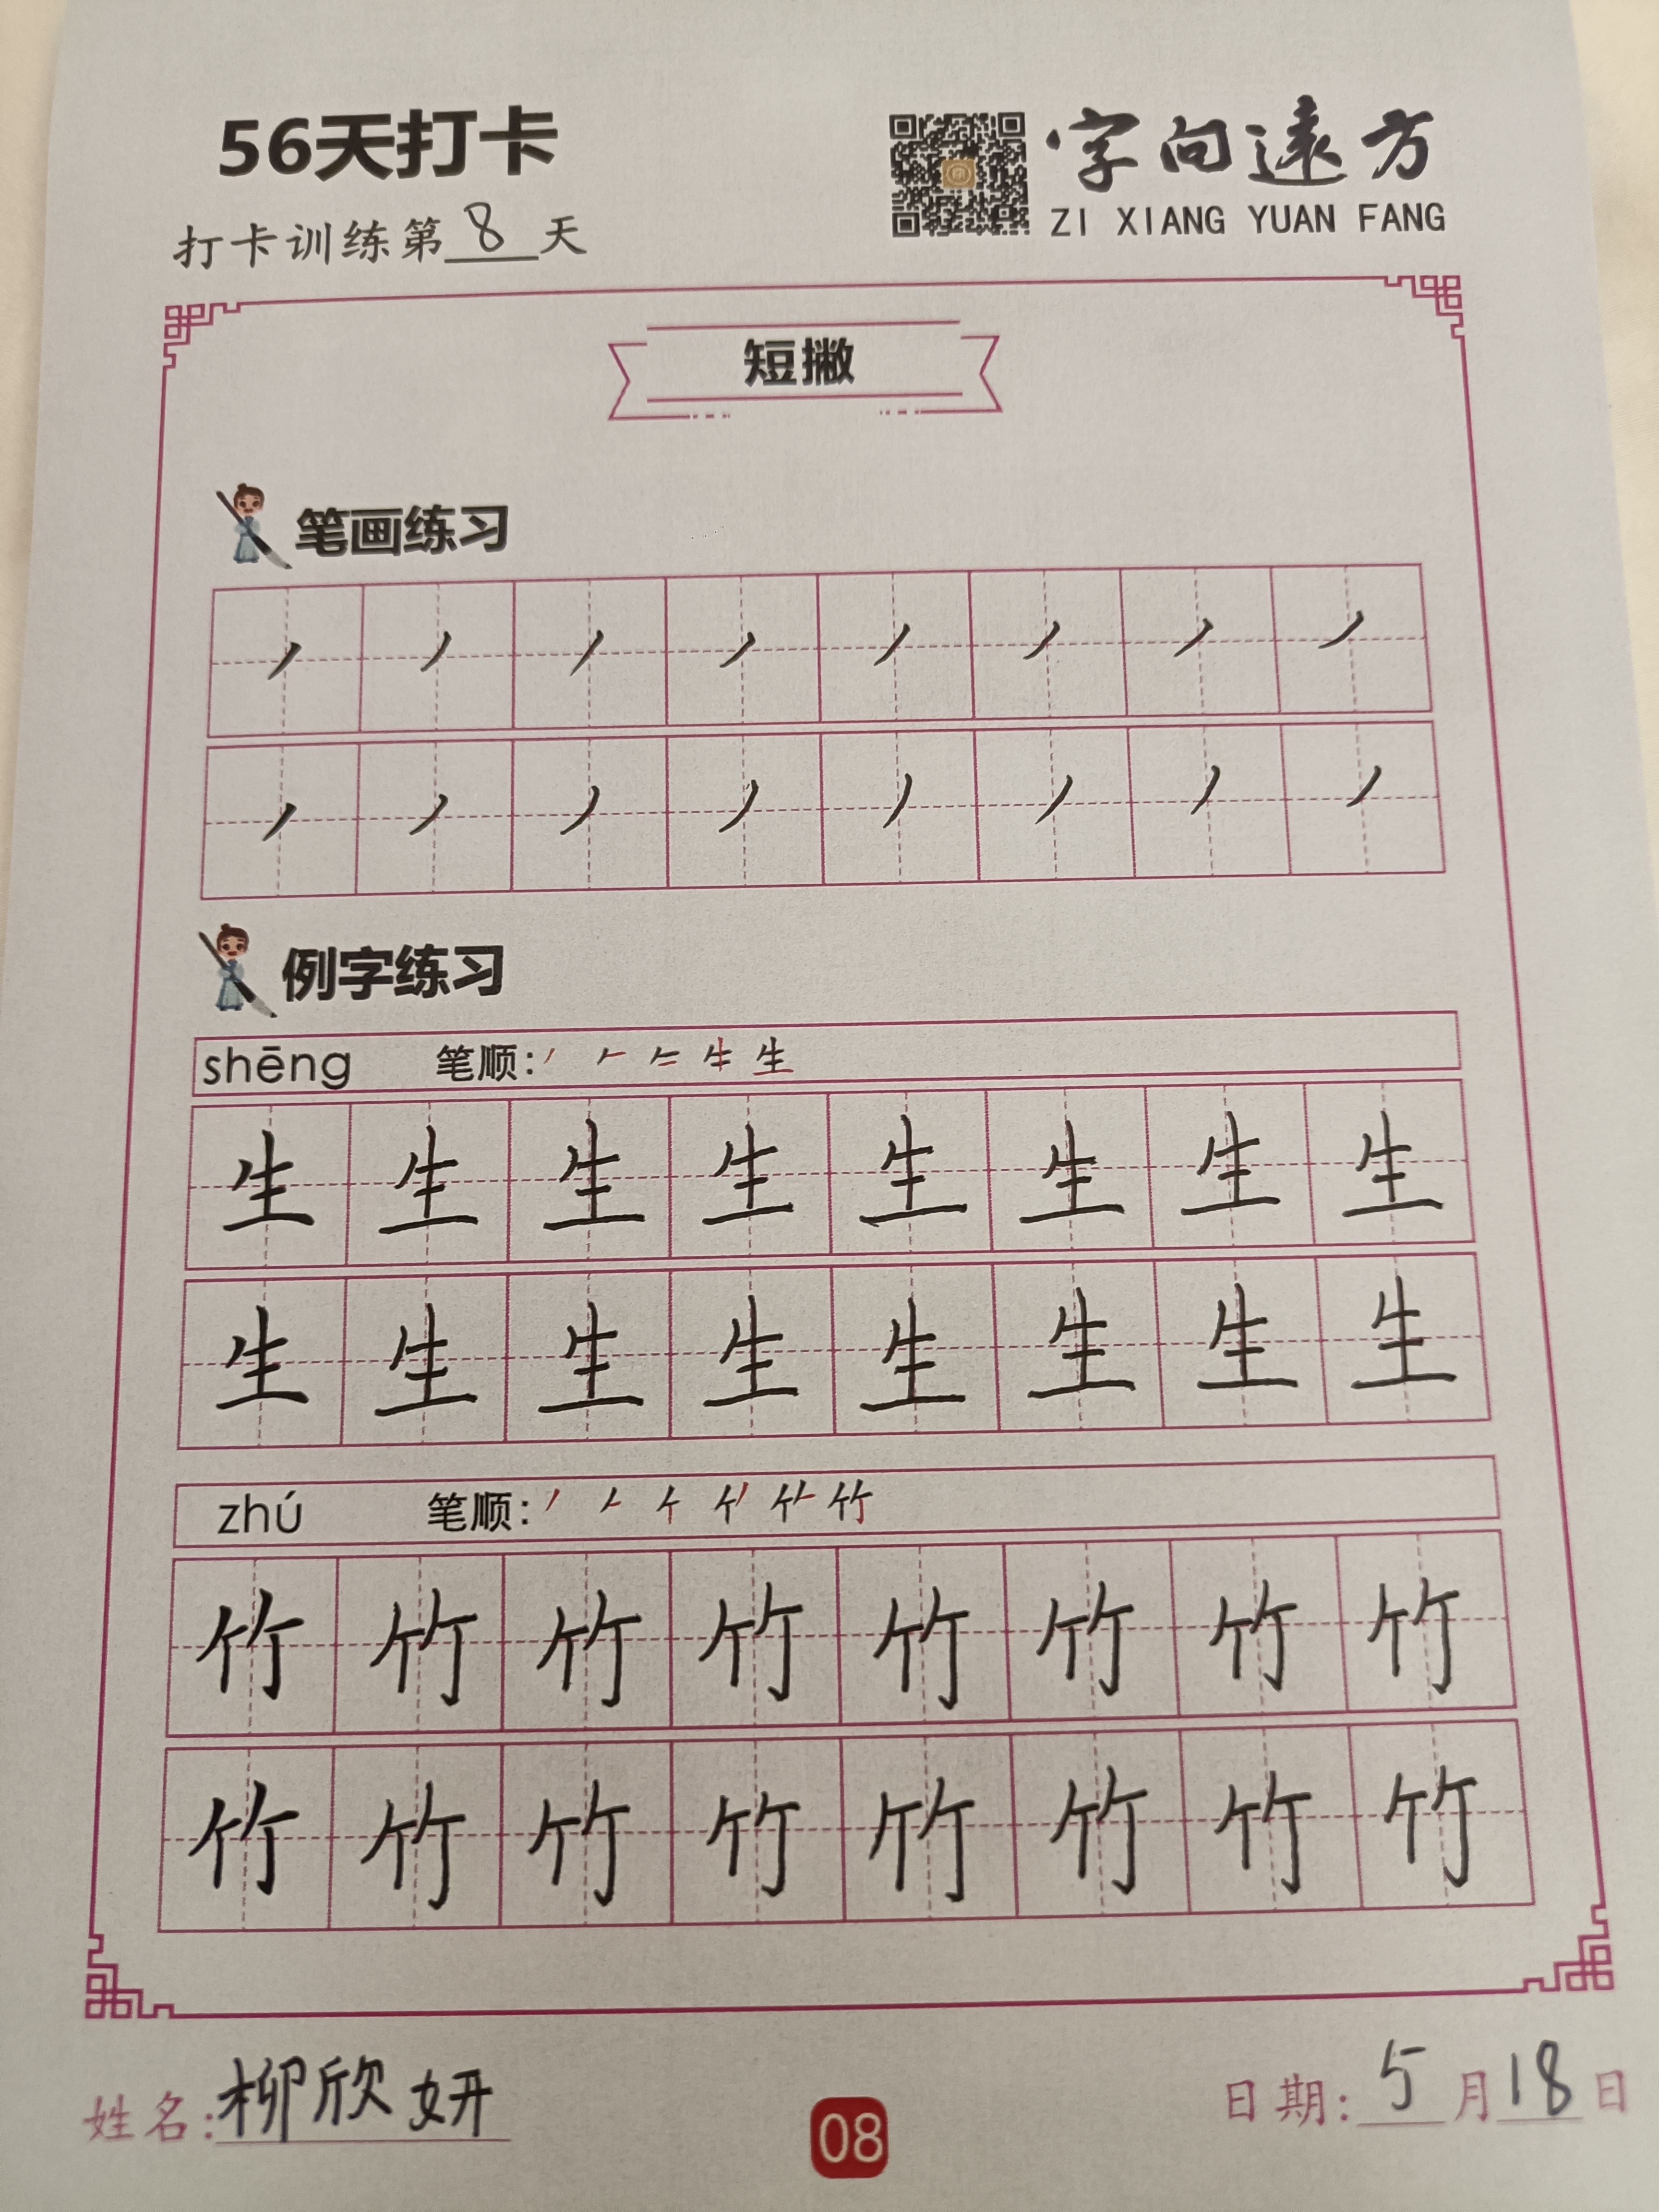 56天打卡
字向遠方
ZI XIANG YUAN FANG
打卡训练第8天
短撇
笔画练习
丿丿丿丿丿丿丿丿
丿丿丿丿丿丿丿丿
例字练习
shēng 笔顺: 生
生生生生生生生生
生生生生生生生生
zhú 笔顺: 竹
竹竹竹竹竹竹竹竹
竹竹竹竹竹竹竹竹
姓名:柳欣妍
08
日期:5月18日